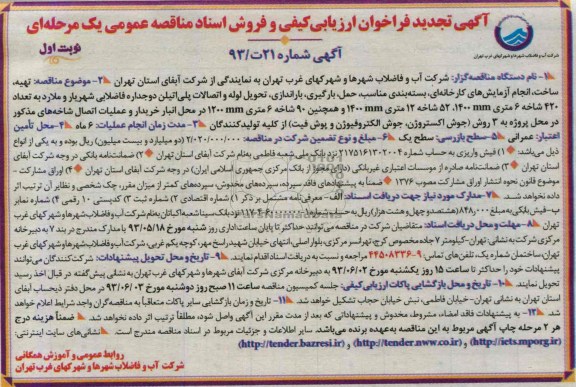 آگهی تجدید فراخوان ارزیابی‌کیفی و فروش اسناد مناقصه عمومی یک مرحله‌ای
آگهی شماره ۲۱ت/۹۳
نوبت اول
شرکت آب و فاضلاب شهرها و شهرکهای غرب تهران
۱- نام دستگاه مناقصه‌گزار: شرکت آب و فاضلاب شهرها و شهرکهای غرب تهران به نمایندگی از شرکت آبفای استان تهران ۲- موضوع مناقصه: تهیه،
ساخت، انجام آزمایش‌های کارخانه‌ای، بسته‌بندی مناسب، حمل، بارگیری، باراندازی، تحویل لوله و اتصالات پلی‌اتیلن دوجداره فاضلابی شهریار و ملارد به تعداد
۴۲۰ شاخه ۶ متری ۱۴۰۰mm، ۵۲ شاخه ۱۲ متری ۱۴۰۰mm و همچنین ۹۰ شاخه ۶ متری ۱۲۰۰mm در محل انبار خریدار و عملیات اتصال شاخه‌های مذکور
در محل پروژه به ۳ روش (جوش اکستروژن، جوش الکتروفیوژن و پوش فیت) از کلیه تولیدکنندگان ۳- مدت زمان انجام عملیات: ۶ ماه ۴- محل تأمین
اعتبار: عمرانی ۵- سطح بازرسی: سطح یک ۶- مبلغ و نوع تضمین شرکت در مناقصه: ۲/۰۲۰/۰۰۰/۰۰۰ (دو میلیارد و بیست میلیون) ریال بوده و به یکی از انواع
ذیل می‌باشد: ۱) فیش واریزی به حساب شماره ۲۱۷۵۱۶۱۳۰۲۰۰۴ نزد بانک ملی شعبه فاطمی به‌نام شرکت آبفای استان تهران ۲) ضمانتنامه بانکی در وجه شرکت آبفای
استان تهران ۳) ضمانتنامه صادره از موسسات اعتباری غیربانکی (دارای مجوز از بانک مرکزی جمهوری اسلامی ایران) در وجه شرکت آبفای استان تهران ۴) اوراق مشارکت -
موضوع قانون نحوه انتشار اوراق مشارکت مصوب ۱۳۷۶ ضمناً به پیشنهادهای فاقد سپرده، سپرده‌های مخدوش، سپرده‌های کمتر از میزان مقرر، چک شخصی و نظایر آن ترتیب اثر
داده نخواهد شد. ۷- مدارک مورد نیاز جهت دریافت اسناد: الف - معرفی‌نامه مشتمل بر ذکر ۱) شماره اقتصادی ۲) شماره ثبت ۳) کدپستی ۱۰ رقمی ۴) شماره نمابر
تهران ۸- مهلت و محل دریافت اسناد: متقاضیان شرکت در مناقصه می‌توانند حداکثر تا پایان ساعت اداری روز شنبه مورخ ۹۳/۰۵/۱۸ با مدارک مندرج در بند ۷ به دبیرخانه
تهران، ساختمان شماره یک، تلفن‌های تماس: ۹-۴۴۵۰۸۳۳۶ مراجعه و نسبت به دریافت اسناد اقدام نمایند. ۹- تاریخ و محل تحویل پیشنهادات: شرکت‌کنندگان می‌بایست
پیشنهادات خود را حداکثر تا ساعت ۱۵ روز یکشنبه مورخ ۹۳/۰۶/۰۲ به دبیرخانه مرکزی شرکت آبفای شهرها و شهرکهای غرب تهران به نشانی پیش‌گفته در قبال اخذ رسید
تحویل نمایند. ۱۰- تاریخ و محل بازگشایی پاکات ارزیابی کیفی: جلسه کمیسیون مناقصه ساعت ۱۱ صبح روز دوشنبه مورخ ۹۳/۰۶/۰۳ در محل دفتر ذیحسابی آبفای
استان تهران به نشانی تهران- خیابان فاطمی، نبش خیابان حجاب تشکیل خواهد شد. ۱۱- تاریخ و زمان بازگشایی سایر پاکات متعاقباً به مناقصه‌گران واجد شرایط اعلام خواهد
شد. ۱۲- به پیشنهادات فاقد امضاء، مشروط، مخدوش و پیشنهاداتی که بعد از مدت مقرر این آگهی واصل شود، مطلقاً ترتیب اثر داده نخواهد شد. ضمناً هزینه درج
هر ۲ مرحله چاپ آگهی مربوط به این مناقصه به‌عهده برنده می‌باشد. سایر اطلاعات و جزئیات مربوط در اسناد مناقصه مندرج است. نشانی‌های سایت اینترنتی:
(http://iets.mporg.ir) و (http://tender.nww.co.ir) و (http://tender.bazresi.ir)
روابط عمومی و آموزش همگانی
شرکت آب و فاضلاب شهرها و شهرکهای غرب تهران